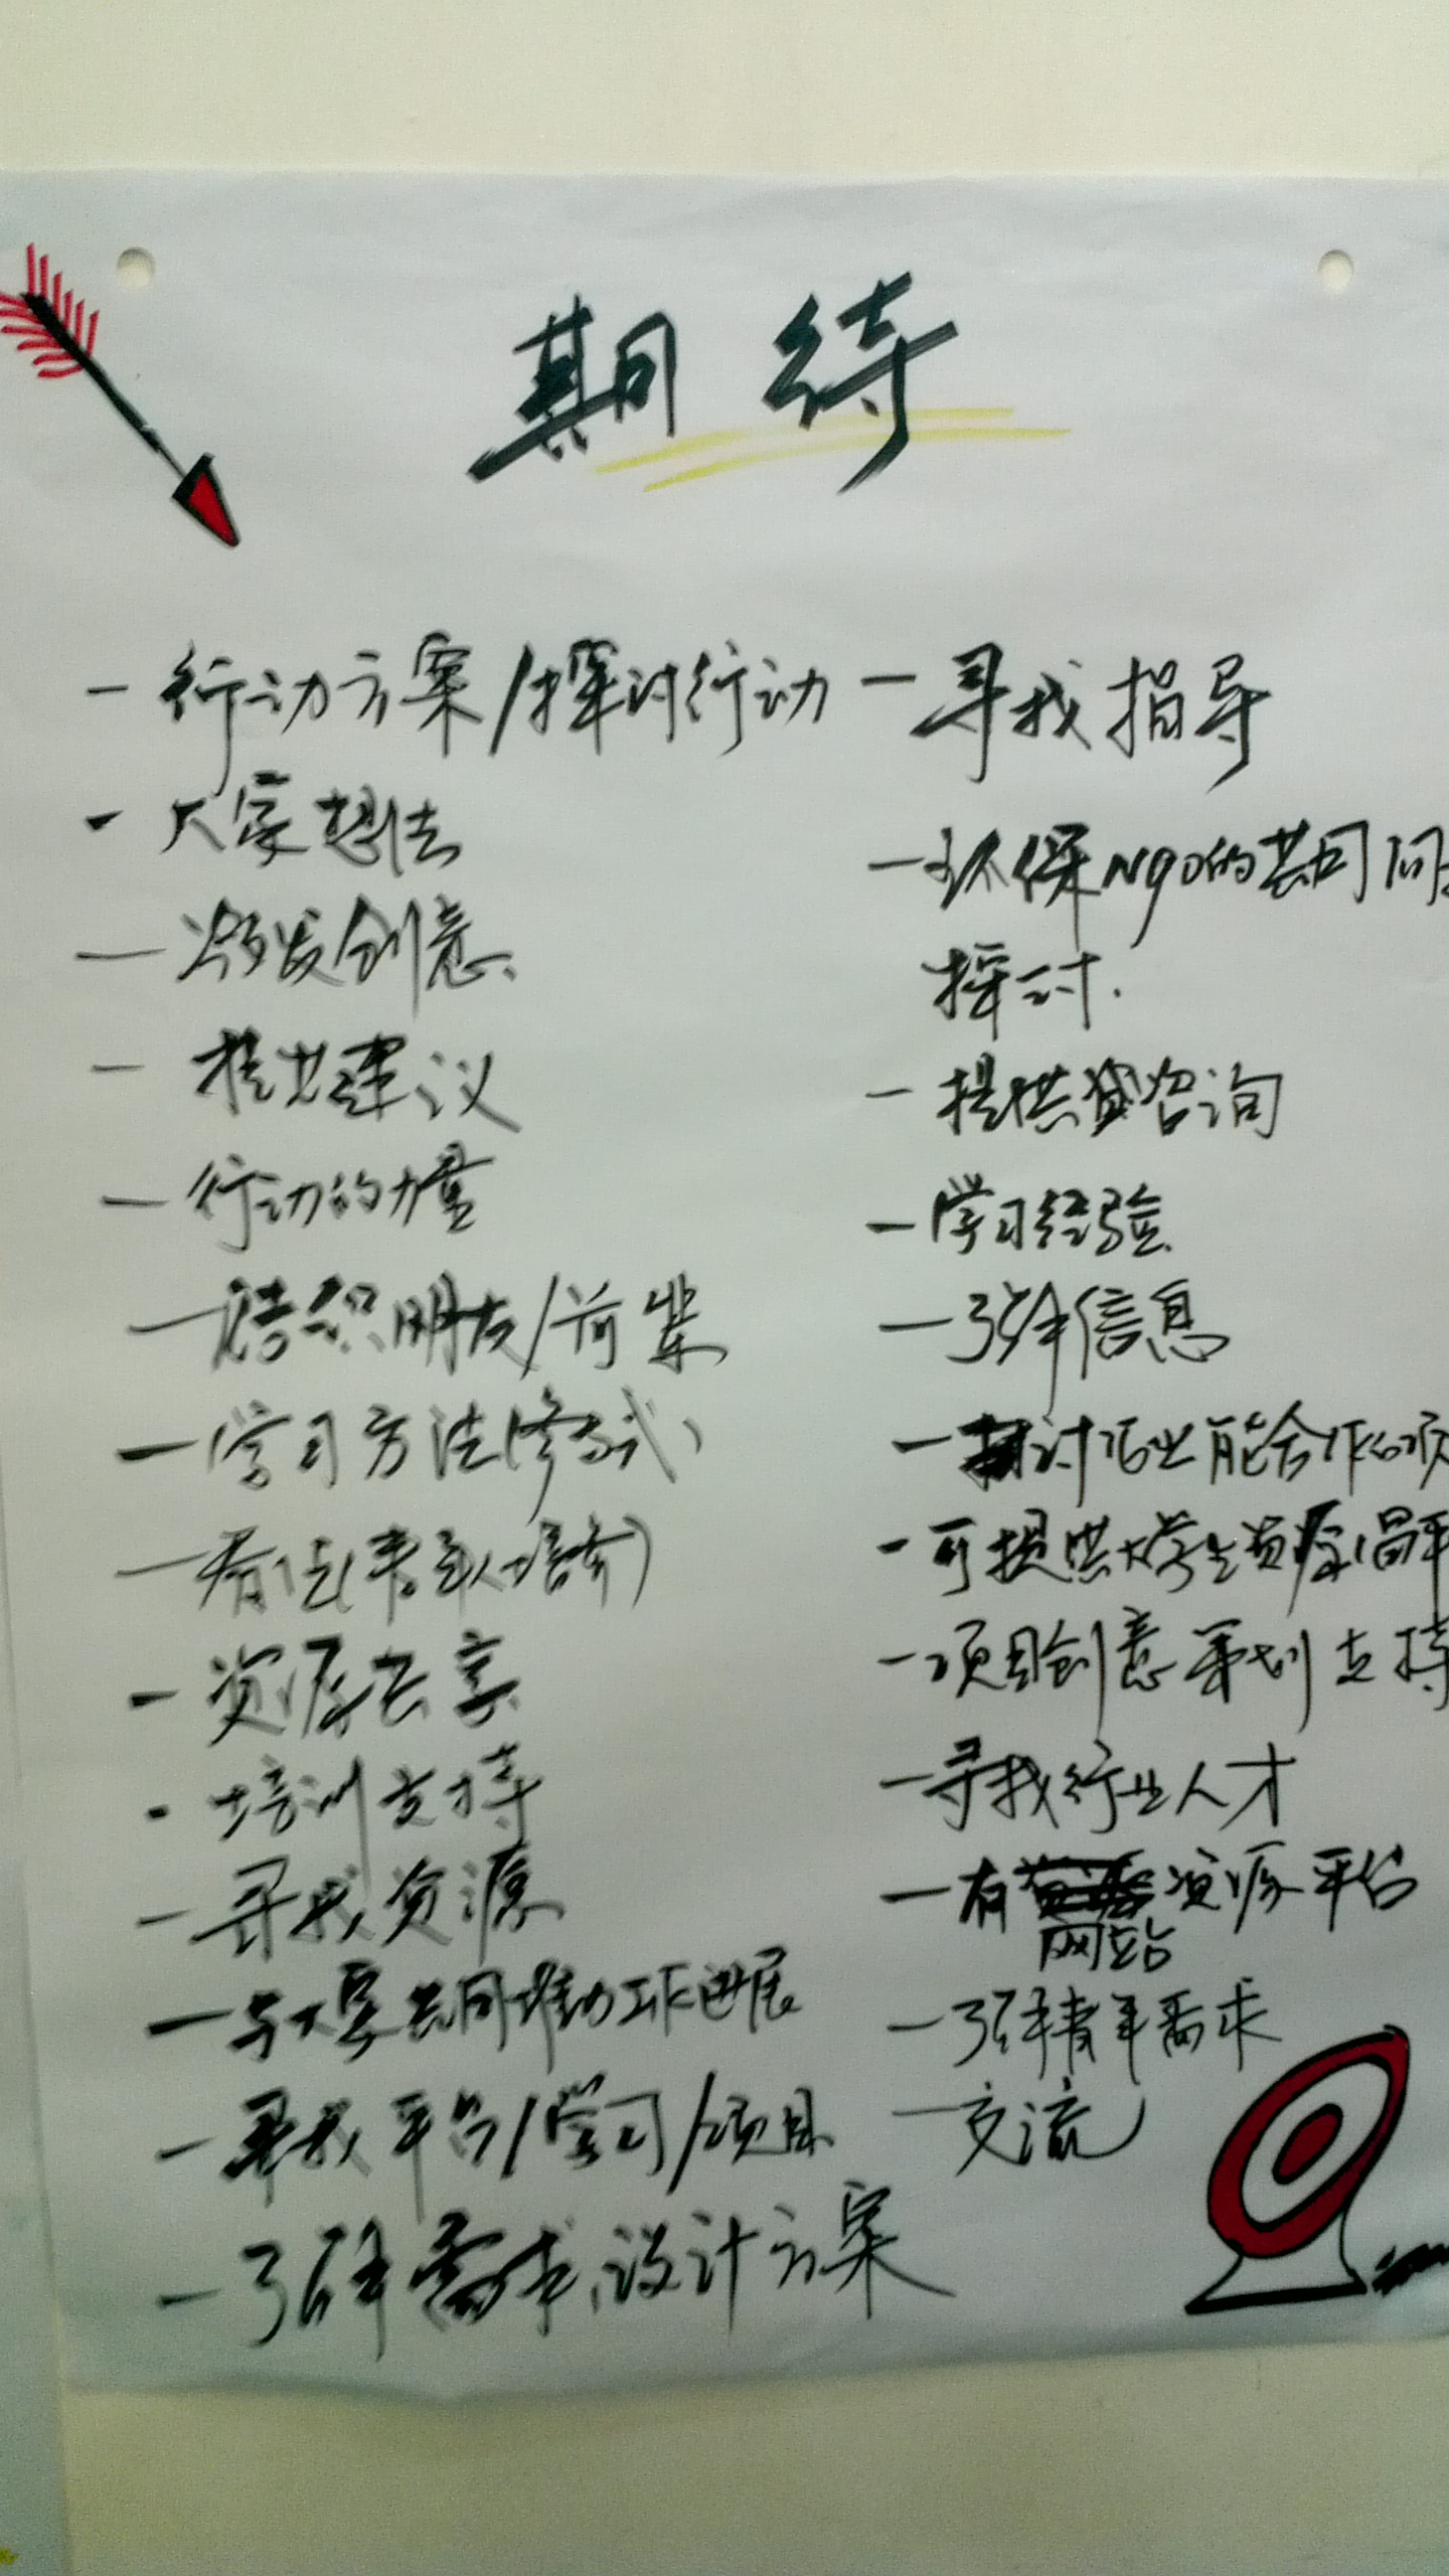 期待
- 行动方案/探讨行动
- 大家想法
- 激发创意
- 提出建议
- 行动的力量
- 结识朋友/前辈
- 学习方法
- 资源共享
- 培训支持
- 寻找资源
- 与大家共同推动工作进展
- 寻找平台/学习/项目
- 了解需求、设计方案
- 寻找指导
- 环保NGO的共同问
探讨.
- 提供咨询
- 学习经验
- 了解信息
- 探讨企业能合作的项
- 可提供大学生资源
- 项目创意策划支持
- 寻找行业人才
- 有资源平台
网站
- 了解青年需求
- 交流